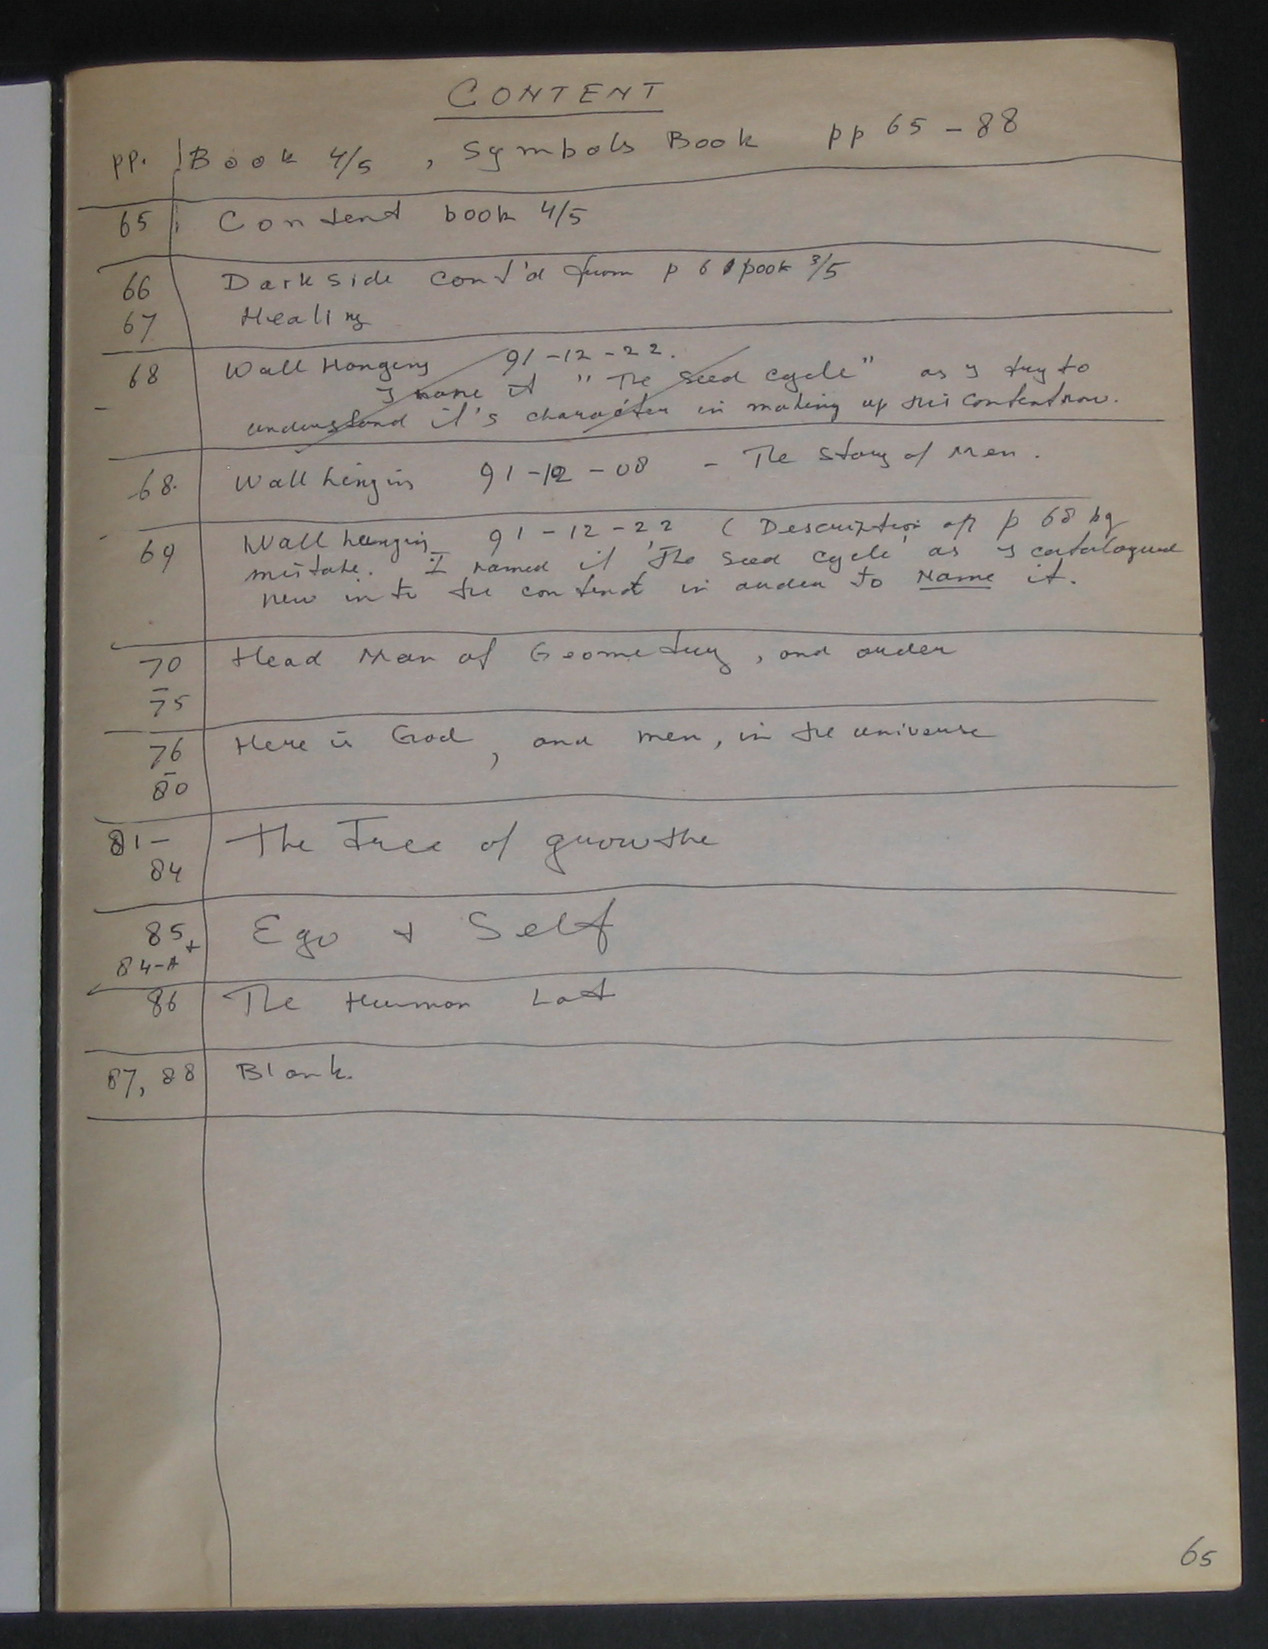 CONTENT
pp. Book 4/5 , Symbols Book pp 65 - 88
65 Content book 4/5
66 Dark side cont'd from p 6 book 3/5
67 Healing
68 Wall Hanging 91-12-22.
I name it "The Seed cycle" as I try to
understand it's character in making up this content now.
68. Wall hingin 91-12-08 - The Story of Men.
69 Wall hanging 91-12-22 (Description on p 68 by
mistake. I named it 'The Seed Cycle' as I catalogued
new into the content in order to Name it.
70 Head Man of Geometry, and order
-
75
76 Here is God, and men, in the universe
-
80
81- The Tree of growthe
84
85 + Ego + Self
84-A
86 The Human Lot
87, 88 Blank.
65